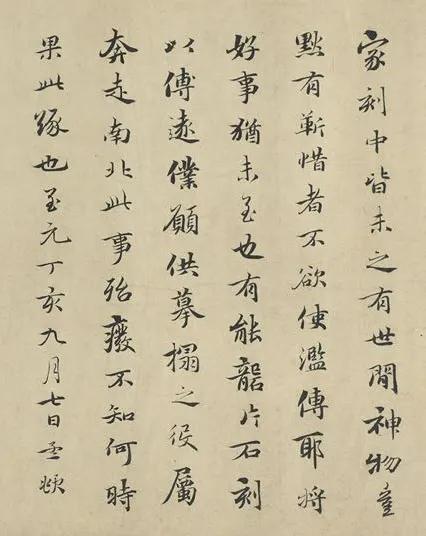 家刻中皆未之有世間神物豈
默有靳惜者不欲使濫傳耶將
好事猶未至也有能礱片石刻
以傳遠僕願供摹搨之役屬
奔走南北此事殆癈不知何時
果此緣也至元丁亥九月七日孟頫